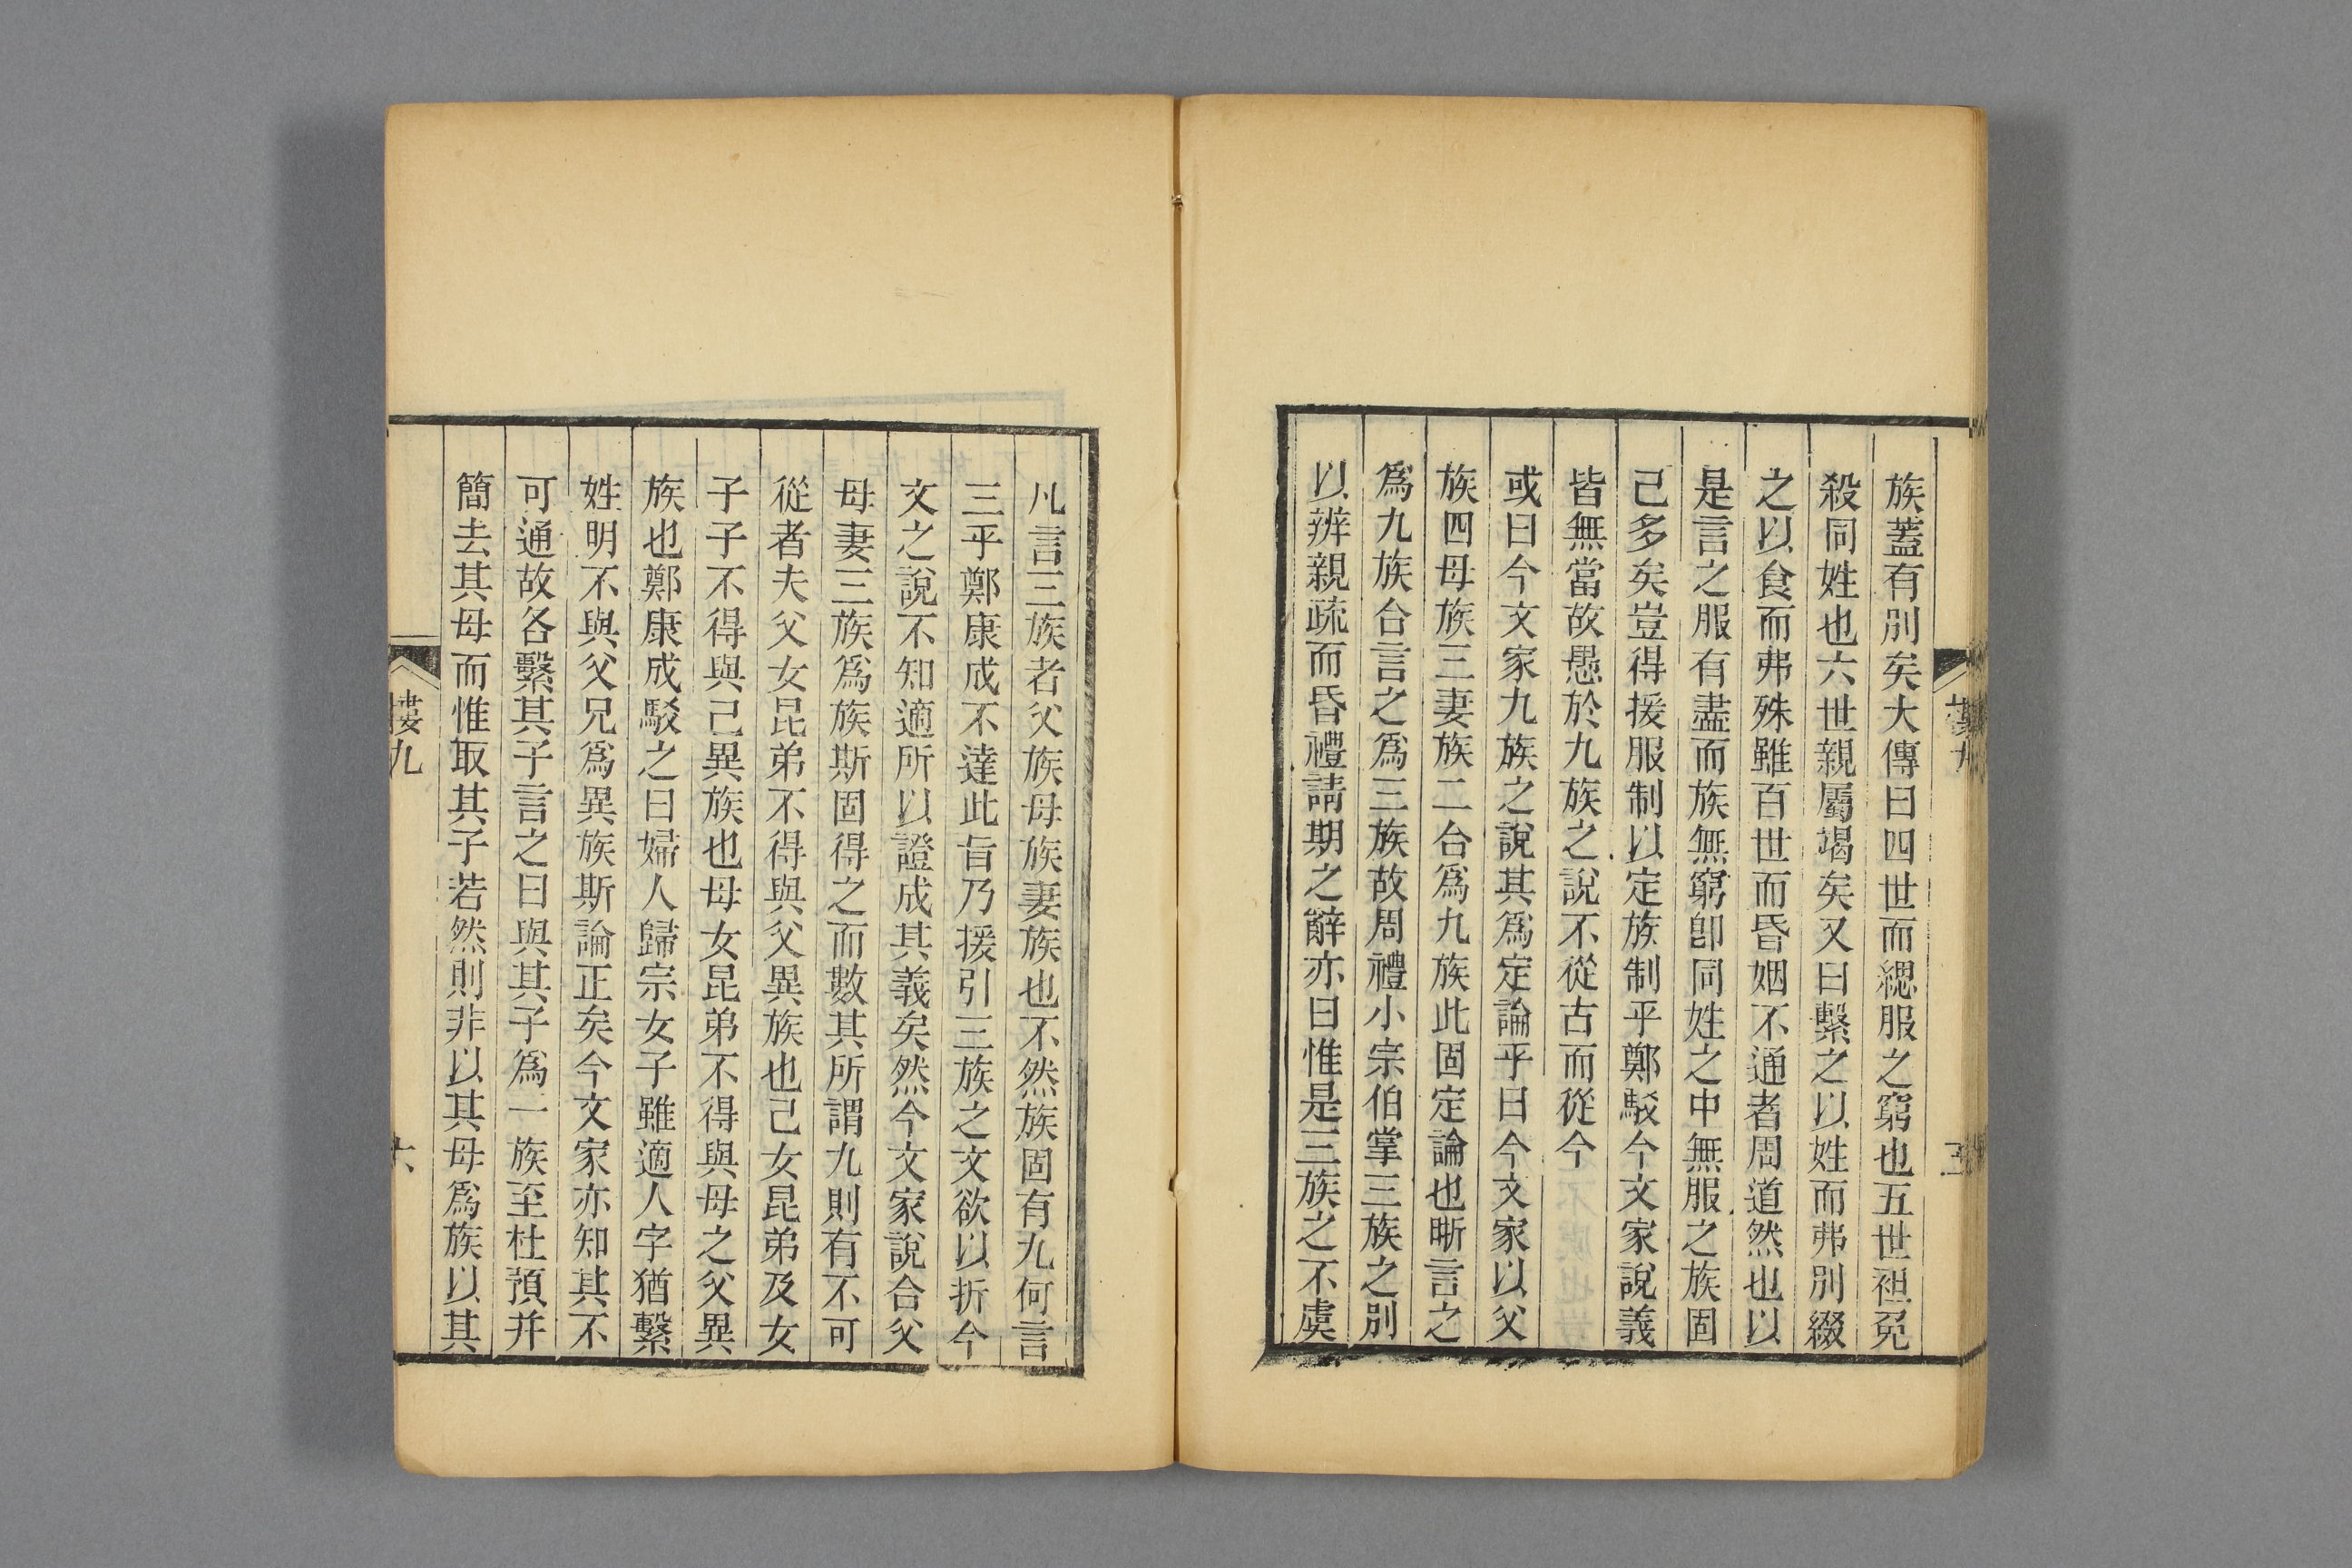 族蓋有別矣大傳曰四世而緦服之窮也五世袒免
殺同姓也六世親屬竭矣又曰繫之以姓而弗別綴
之以食而弗殊雖百世而昏姻不通者周道然也以
是言之服有盡而族無窮卽同姓之中無服之族固
己多矣豈得援服制以定族制乎鄭駁今文家說義
皆無當故愚於九族之說不從古而從今
或曰今文家九族之說其爲定論乎曰今文家以父
族四母族三妻族二合爲九族此固定論也晰言之
爲九族合言之爲三族故周禮小宗伯掌三族之別
以辨親疏而昏禮請期之辭亦曰惟是三族之不虞
凡言三族者父族母族妻族也不然族固有九何言
三乎鄭康成不達此旨乃援引三族之文欲以折今
文之說不知適所以證成其義矣然今文家說合父
母妻三族爲族斯固得之而數其所謂九則有不可
從者夫父女昆弟不得與父異族也己女昆弟及女
子子不得與己異族也母女昆弟不得與母之父異
族也鄭康成駁之曰婦人歸宗女子雖適人字猶繫
姓明不與父兄爲異族斯論正矣今文家亦知其不
可通故各繫其子言之曰與其子爲一族至杜預并
簡去其母而惟取其子若然則非以其母爲族以其
樓九
六